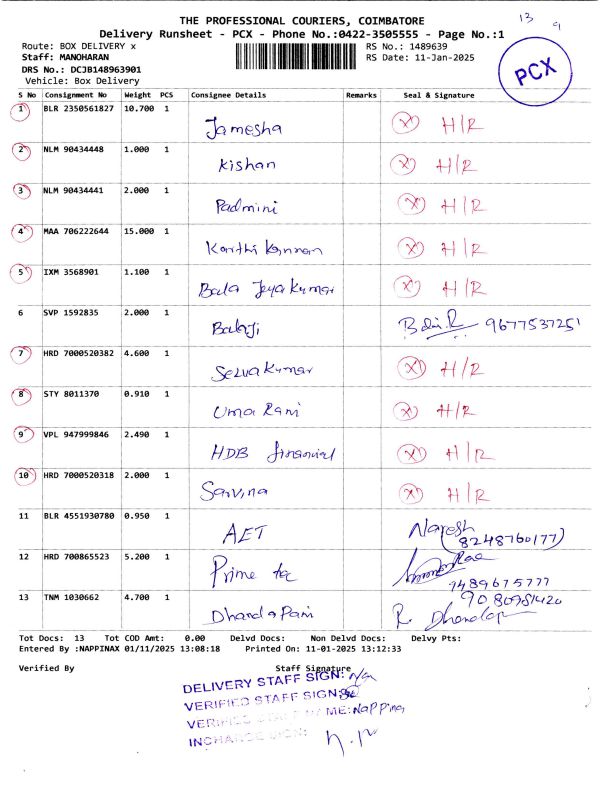 13
9
THE PROFESSIONAL COURIERS, COIMBATORE
Delivery Runsheet - PCX - Phone No.:0422-3505555 - Page No.:1
Route: BOX DELIVERY x RS No.: 1489639
Staff: MANOHARAN RS Date: 11-Jan-2025
DRS No.: DCJB148963901
Vehicle: Box Delivery
PCX
S No Consignment No Weight PCS Consignee Details Remarks Seal & Signature
1 BLR 2350561827 10.700 1 Jamesha X H/R
2 NLM 90434448 1.000 1 Kishan X H/R
3 NLM 90434441 2.000 1 Padmini X H/R
4 MAA 706222644 15.000 1 Karthi Kannan X H/R
5 IXM 3568901 1.100 1 Bala Jeyakumar X H/R
6 SVP 1592835 2.000 1 Balaji 9677537251
7 HRD 7000520382 4.600 1 Selvakumar X H/R
8 STY 8011370 0.910 1 Uma Rani X H/R
9 VPL 947999846 2.490 1 HDB financial X H/R
10 HRD 7000520318 2.000 1 X H/R
11 BLR 4551930780 0.950 1 AET Naresh
(8248760177)
12 HRD 700865523 5.200 1 Prime tec
9489675777
13 TNM 1030662 4.700 1 DhandaPani R. Dhandap
9080981420
Tot Docs: 13 Tot COD Amt: 0.00 Delvd Docs: Non Delvd Docs: Delvy Pts:
Entered By :NAPPINAX 01/11/2025 13:08:18 Printed On: 11-01-2025 13:12:33
Verified By Staff Signature
DELIVERY STAFF SIGN: n/a
VERIFIED STAFF SIGN:
VERIFIED STAFF NAME: Nappinay
INCHARGE SIGN: